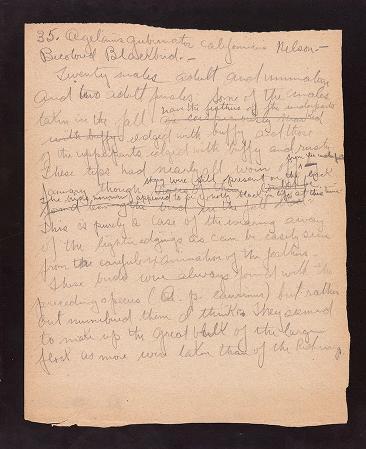 35. Agelaius gubernator californicus Nelson.—
Bicolored Blackbird.—
Twenty males adult and immature
and two adult females. Some of the males
taken in the fall have the feathers of the underparts
with buffy edged with buffy and those
of the upperparts edged with buffy and rusty
These tips had nearly all worn off from the underparts by
January though they were still present on the back
The birds normally appeared to be wholly black in life at this time
This is purely a case of the wearing away
of the light edgings as can be easily seen
from the careful examination of the feathers.
These birds were always found with the
preceding species (A. p. caurinus) but rather
out numbered them I think. They seemed
to make up the great bulk of the large
flock as more were taken than of the Redwing